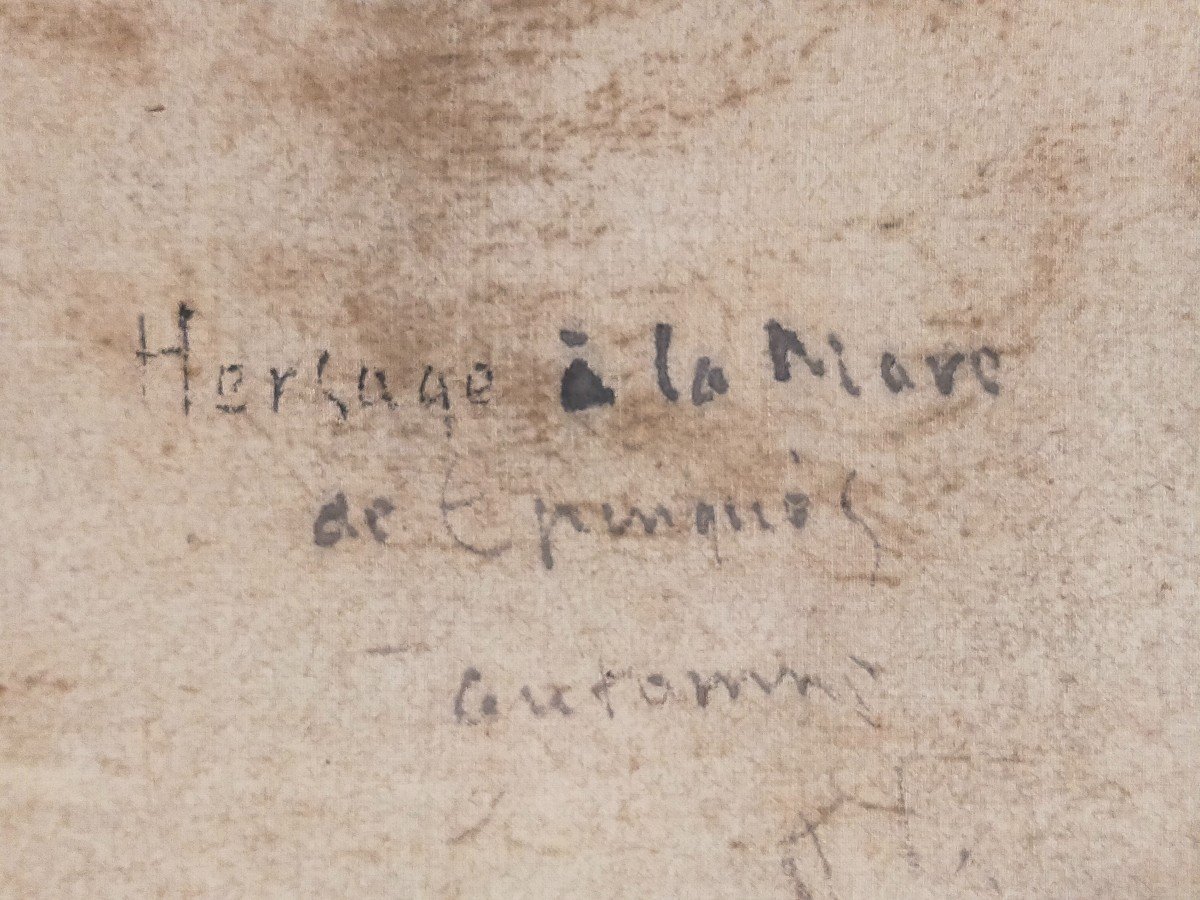 Herbage à la Mare
de Epinquès
automne